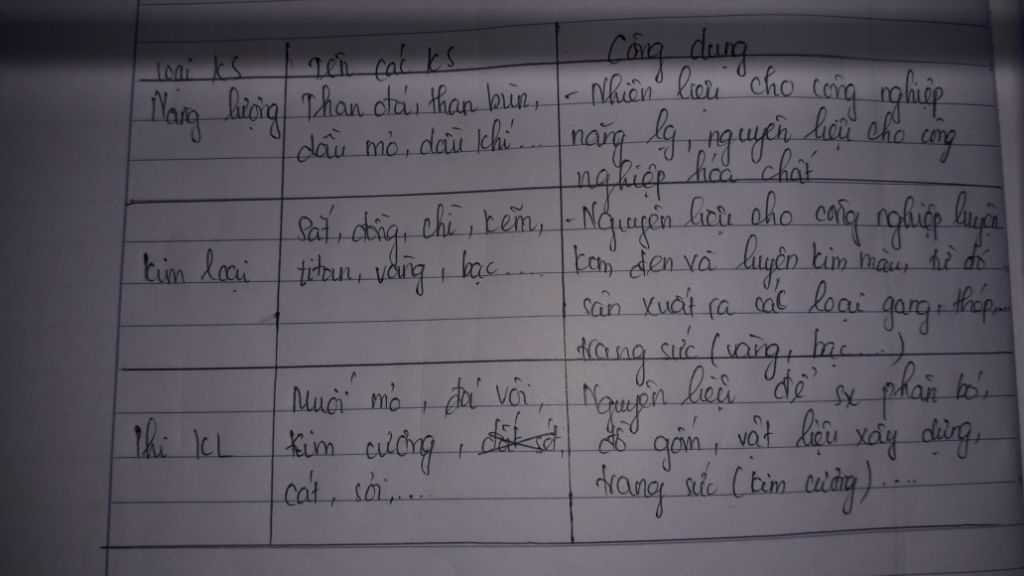 Loại KS | Tên các KS | Công dụng
Năng lượng | Than đá, than bùn, | - Nhiên liệu cho công nghiệp
dầu mỏ, dầu khí... | năng lg, nguyên liệu cho công
nghiệp hóa chất
Sắt, đồng, chì, kẽm, | - Nguyên liệu cho công nghiệp luyện
Kim loại | titan, vàng, bạc.... | kim đen và luyện kim màu, từ đó
sản xuất ra các loại gang, thép,...
trang sức (vàng, bạc....)
Muối mỏ, đá vôi, | Nguyên liệu để sx phân bó,
Phi KL | kim cương, | đồ gốm, vật liệu xây dựng,
cát, sỏi,.... | trang sức (kim cương)....